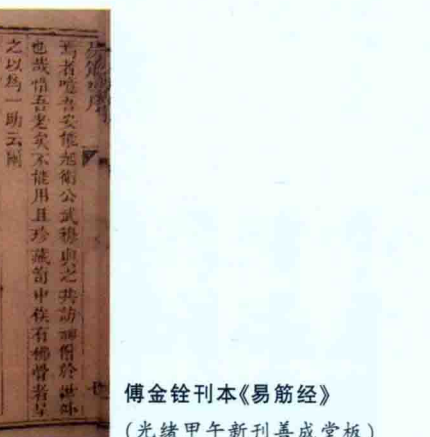 焉者噫吾安能起衛公武穆與之共訪神僧於嵩
也哉惜吾老矣不能用且珍藏笥中俟有佛骨者與
之以爲一助云爾
傅金铨刊本《易筋经》
(光绪甲午新刊善成堂板)